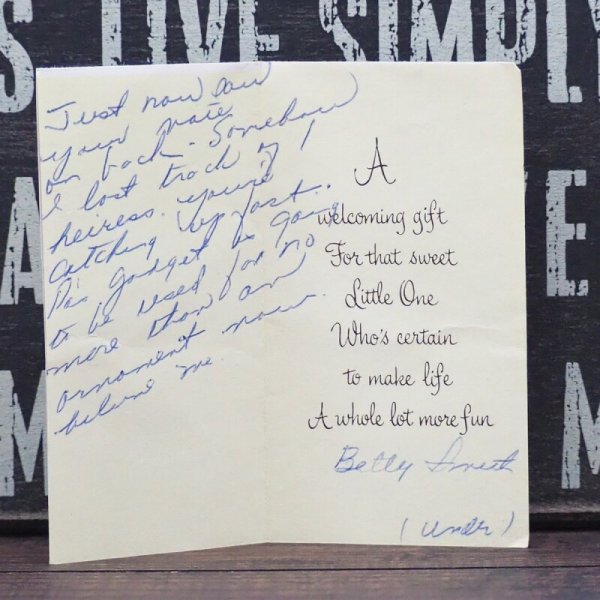 S LIVE SIMPLY
Just now saw
your note
on back. Somehow
I lost track of 1
heiress. you're
catching up fast.
Pa's gadget is going
to be used for no
more than an
ornament now
believe me.
A
welcoming gift
For that sweet
Little One
Who's certain
to make life
A whole lot more fun
Betty Smith
(under)